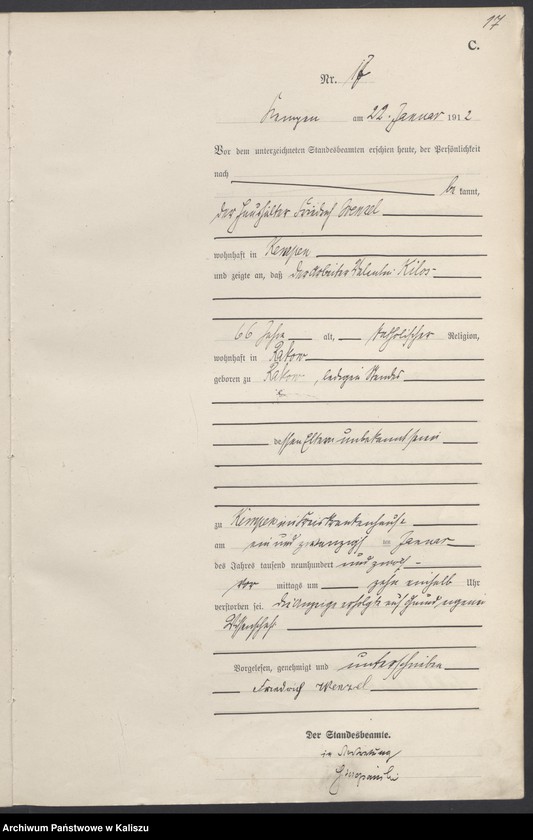 17
C.
Nr. 17
Kempen am 22. Januar 1912
Vor dem unterzeichneten Standesbeamten erschien heute, der Persönlichkeit
nach
be kannt,
der Haushälter Friedrich Wenzel
wohnhaft in Kempen
und zeigte an, daß der Arbeiter Valentin Kilos
66 Jahre alt, katholischer Religion,
wohnhaft in Rakow
geboren zu Rakow, ledigen Standes
dessen Eltern unbekannt seien
zu Kempen im Kreiskrankenhause
am ein und zwanzigs ten Januar
des Jahres tausend neunhundert und zwölf
vor mittags um zehn einhalb Uhr
verstorben sei. Die Anzeige erfolgte auf Grund eigener
Wissenschaft.
Vorgelesen, genehmigt und unterschrieben
Friedrich Wenzel
Der Standesbeamte.
in Vertretung
Archiwum Państwowe w Kaliszu